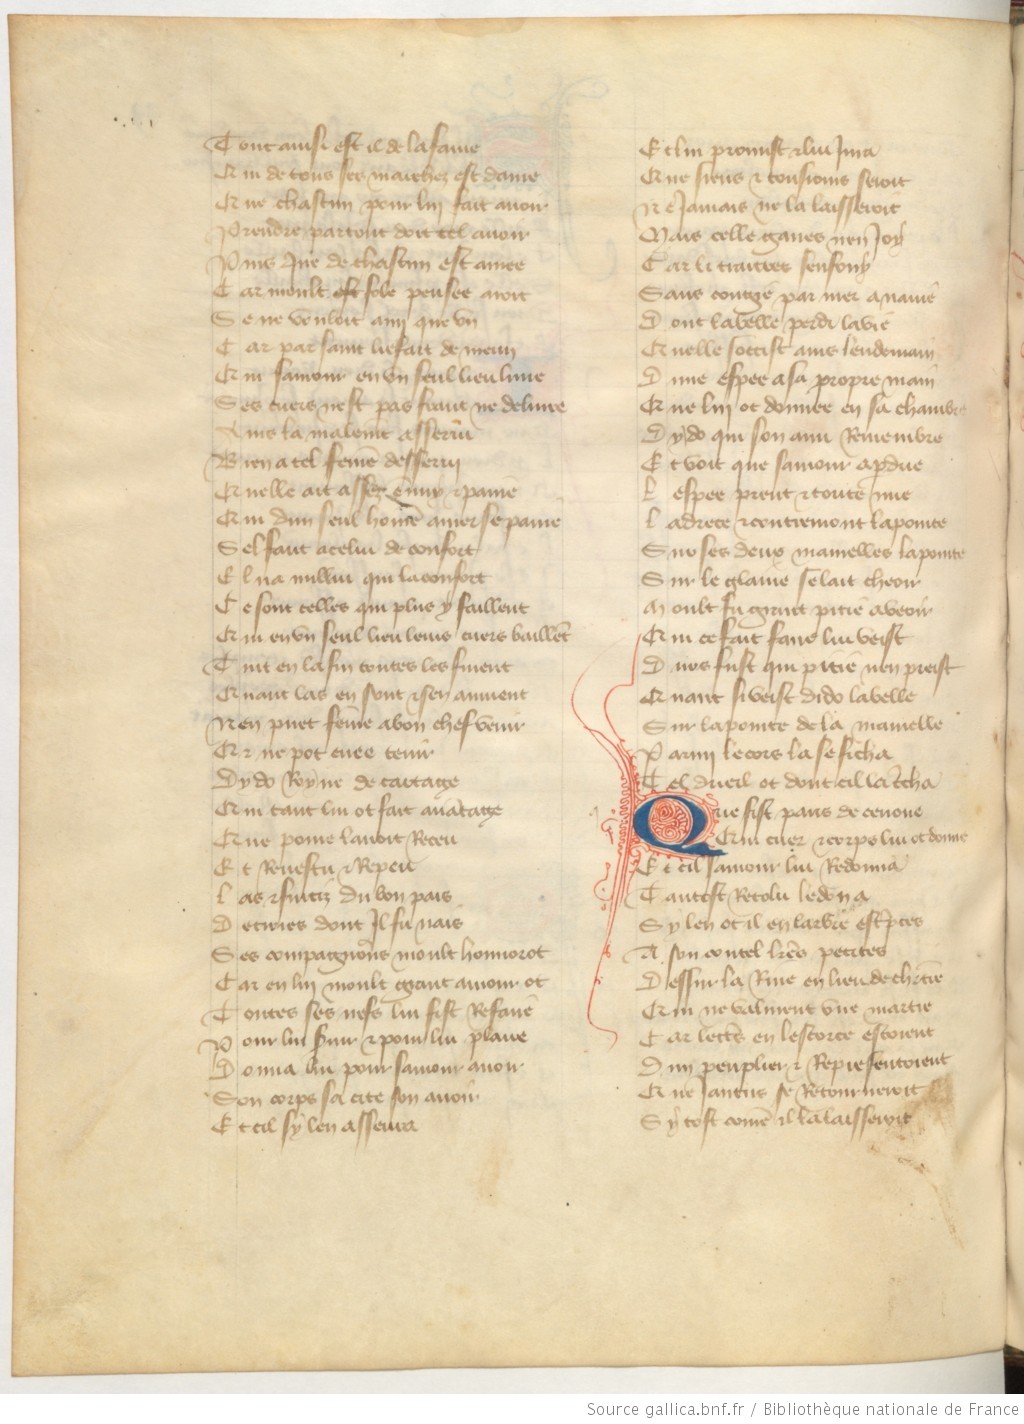 Tout ainsi est il de la fame
Qui de tous ses marchez est dame
Que chascun pour luy fait auoir
Prendre partout doit tel auoir
Puis que de chascun est amee
Car moult est fole pensee auoit
Se ne vouloit amy que vn
Car par saint liefart de meun
Qui samour en vn seul lieu liure
Ses cuers nest pas franc ne deliure
Ains la malemt asseruy
Bien a tel feme desseruy
Quelle ait assez ennuy et paine
Qui dun seul home amer se paine
Sel faut a celui de confort
El na nulluy qui la confort
Ce sont celles qui plus y faillent
Qui en vn seul lieu leurs cuers baillent
Tuit en la fin toutes les fuient
Quant las en sont et sen anuient
Nen puet feme a bon chef venir
Q ne pot enee tenir
Dydo Royne de cartage
Qui tant lui ot fait auatage
Que poure lauoit Receu
Et Reuestu et Repeu
Las et fuitiz du bon pais
De troies dont Il fu nais
Ses compagnons moult honnorot
Car en luy moult grant amour ot
Toutes ses nefs lui fist Refaire
Pour lui seruir et pour lui plaire
Donna lui pour samour auoir
Son corps sa cite son auoir
Et cil sy len asseura
Et lui promist et lui Jura
Que siens et tousiours seroit
Ne Jamais ne la laisseroit
Mais celle gaires nen Joy
Car li traitres senfouy
Sans congie par mer a nauie
Dont la belle perdi la vie
Quelle soccist ains lendemain
Dune espee a sa propre main
Que luy ot donnee en sa chambre
Dydo qui son amy Remembre
Et voit que samour a pdue
Lespee prent et toute nue
La drece et contremont la pointe
Soubz ses deux mamelles la pointe
Sur le glaiue se lait cheoir
Moult fu grant pitie a veoir
Qui ce fait faire lui veist
Durs fust qui pitie nen preist
Quant si veist dido la belle
Sur la pointe de la mamelle
Parmi le cors la se ficha
Tel dueil ot dont cil la tcha
Que fist paris de cenone
Qui cuer et corps lui ot donne
Et cil samour lui Redonna
Tantost Retolu le don a
Sy len ot il en larbre esptes
A son coutel lres petites
Dessur la Riue en lieu de chrtre
Qui ne valurent vne martre
Car lettres en lescorce estoient
Dun peuplier et Representoient
Que Jantus se Retourneroit
Sy tost come il la laisseroit
Source gallica.bnf.fr / Bibliothèque nationale de France